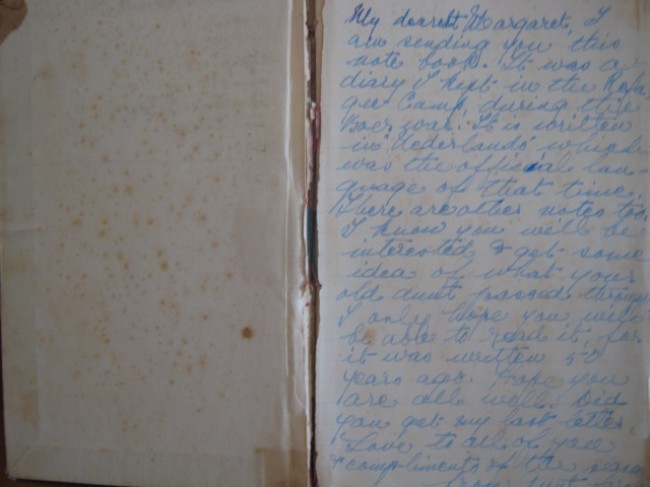 My dearest Margaret, I
am sending you this
note book. It was a
diary I kept in the Refu-
gee Camp during the
Boer war. It is written
in "Nederlands" which
was the official lan-
guage of that time.
There are other notes too.
I know you will be
interested & get some
idea of what your
old aunt passed through
I only hope you will
be able to read it, for
it was written 50
years ago. Hope you
are all well. Did
you get my last letter.
Love to all of you
& compliments of the
from